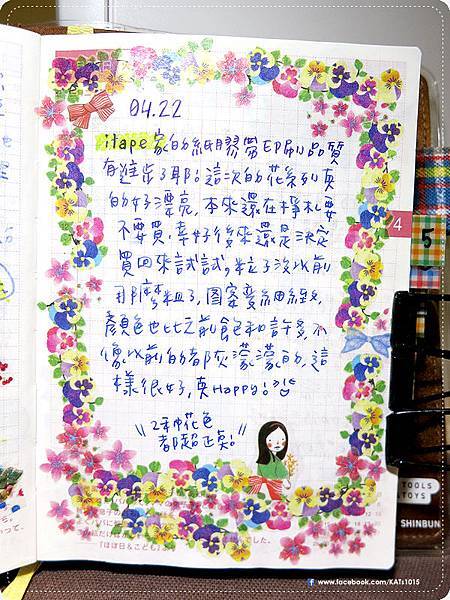 04.22
itape家的紙膠帶印刷品質
有進步了耶!這次的花系列真
的好漂亮,本來還在掙扎要
不要買,幸好後來還是決定
買回來試試,粒子沒以前
那麼粗了,圖案變細緻,
顏色也比之前飽和許多,不
像以前的都灰濛濛的,這
樣很好,真Happy!
"2種花色
都超正真!"
4
5
TOOLS
&TOYS
SHINBUN
『ほぼ日&こども』
www.facebook.com/KATs1015